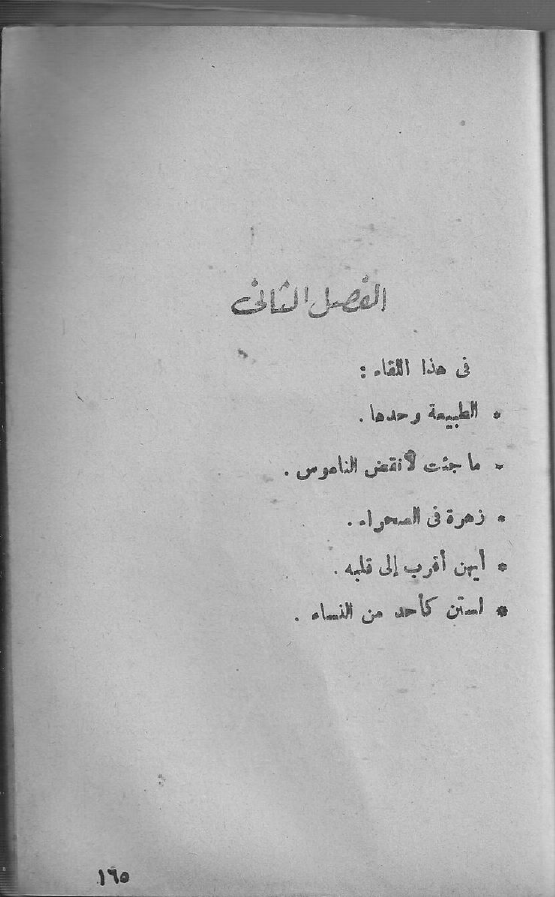 الفصل الثانى
فى هذا اللقاء :
• الطبيعة وحدها .
• ما جئت لأنقض الناموس .
• زهرة فى الصحراء .
• أيهن أقرب إلى قلبه .
• لستن كأحد من النساء .
١٦٥